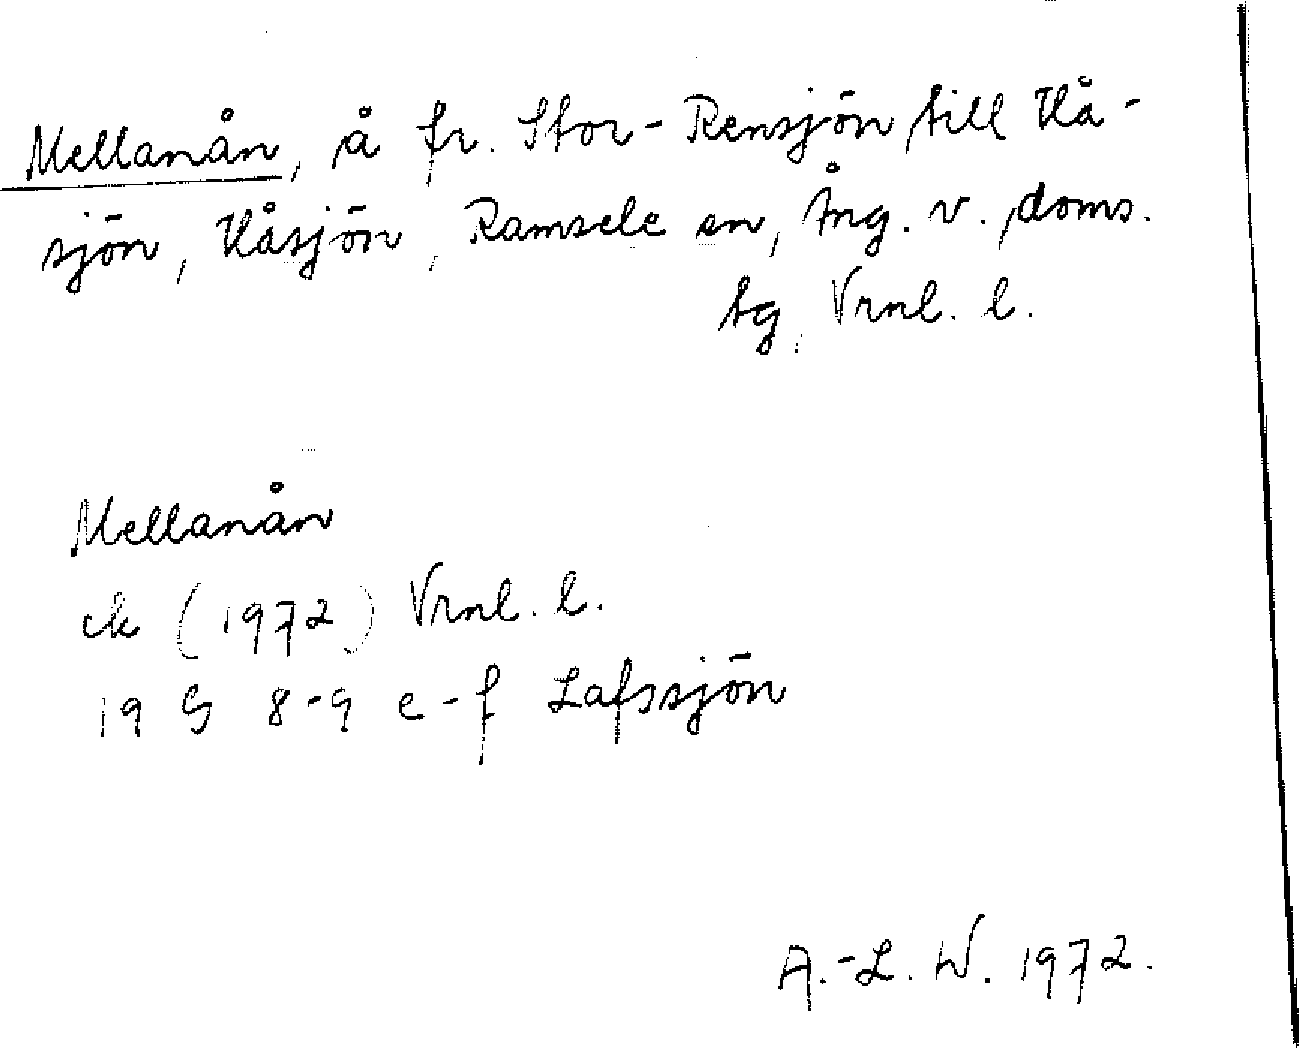 Mellanån, å fr. Stor-Rensjön till Vå-
sjön, Våsjön, Ramsele sn, Ång. v. doms.
tg, Vrnl. l.
Mellanån
ek (1972) Vrnl. l.
19 G 8-9 e-f Lafssjön
A.-L. W. 1972.